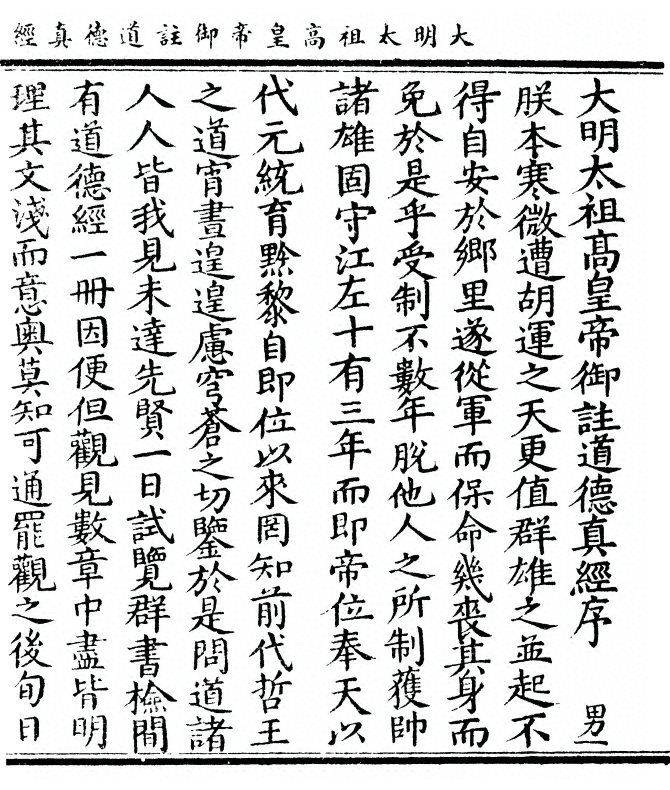 大明太祖高皇帝御註道德真經
大明太祖高皇帝御註道德真經序 男一
朕本寒微遭胡運之天更值群雄之並起不
得自安於鄉里遂從軍而保命幾喪其身而
免於是乎受制不數年脫他人之所制獲帥
諸雄固守江左十有三年而即帝位奉天以
代元統育黔黎自即位以來罔知前代哲王
之道宵晝遑遑慮穹蒼之切鑒於是問道諸
人人皆我見未達先賢一日試覽群書檢間
有道德經一冊因便但觀見數章中盡皆明
理其文淺而意奧莫知可通罷觀之後旬日